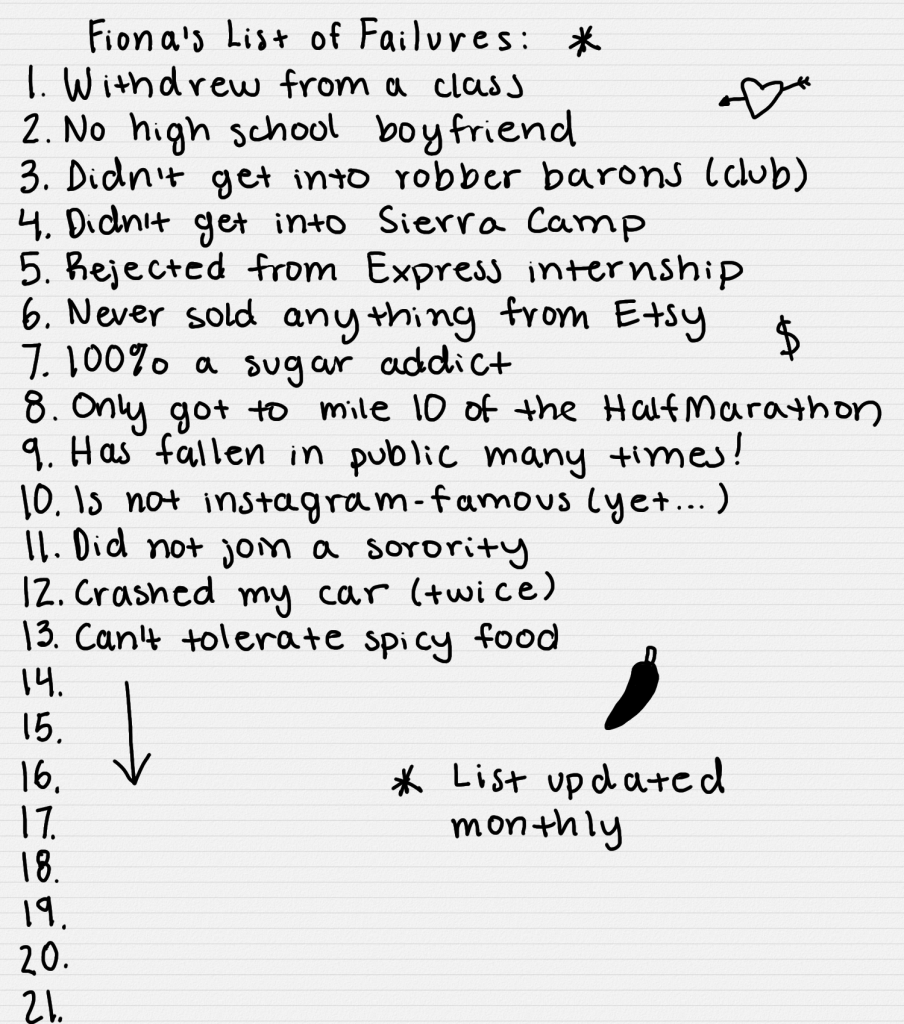 Fiona's List of Failures: *
1. Withdrew from a class
2. No high school boyfriend
3. Didn't get into robber barons (club)
4. Didn't get into Sierra Camp
5. Rejected from Express internship
6. Never sold anything from Etsy
$
7. 100% a sugar addict
8. Only got to mile 10 of the Half Marathon
9. Has fallen in public many times!
10. Is not instagram-famous (yet...)
11. Did not join a sorority
12. Crashed my car (twice)
13. Can't tolerate spicy food
14.
15.
16.
* List updated
monthly
17.
18.
19.
20.
21.